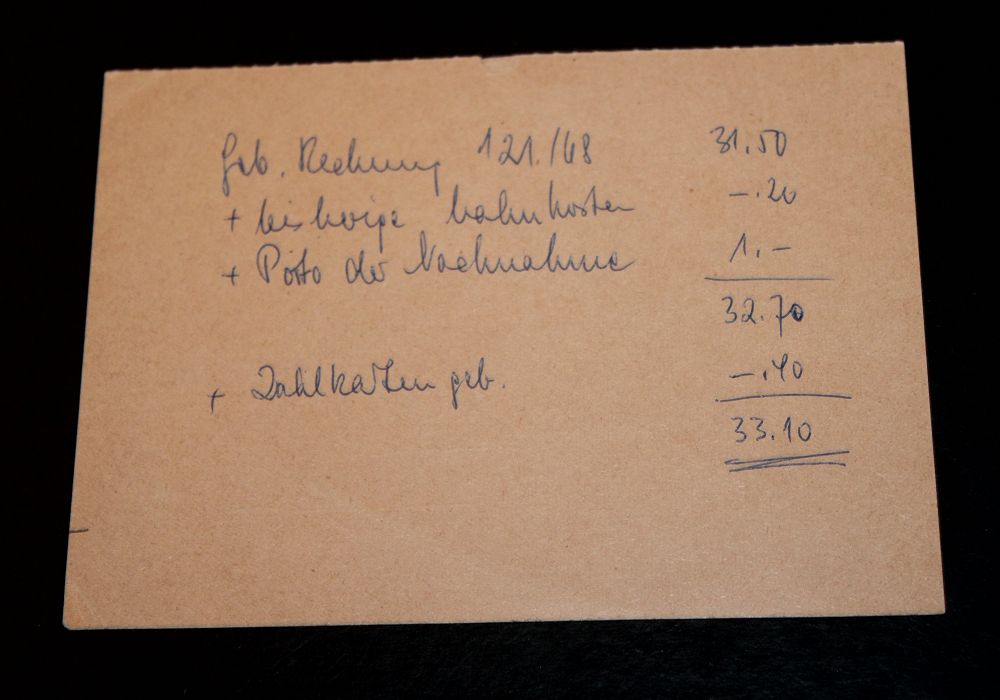 Geb. Rechnung 121./48 31.50
+ bisherige Mahnkosten -.20
+ Porto der Nachnahme 1.-
32.70
+ Zahlkarten geb. -.40
33.10